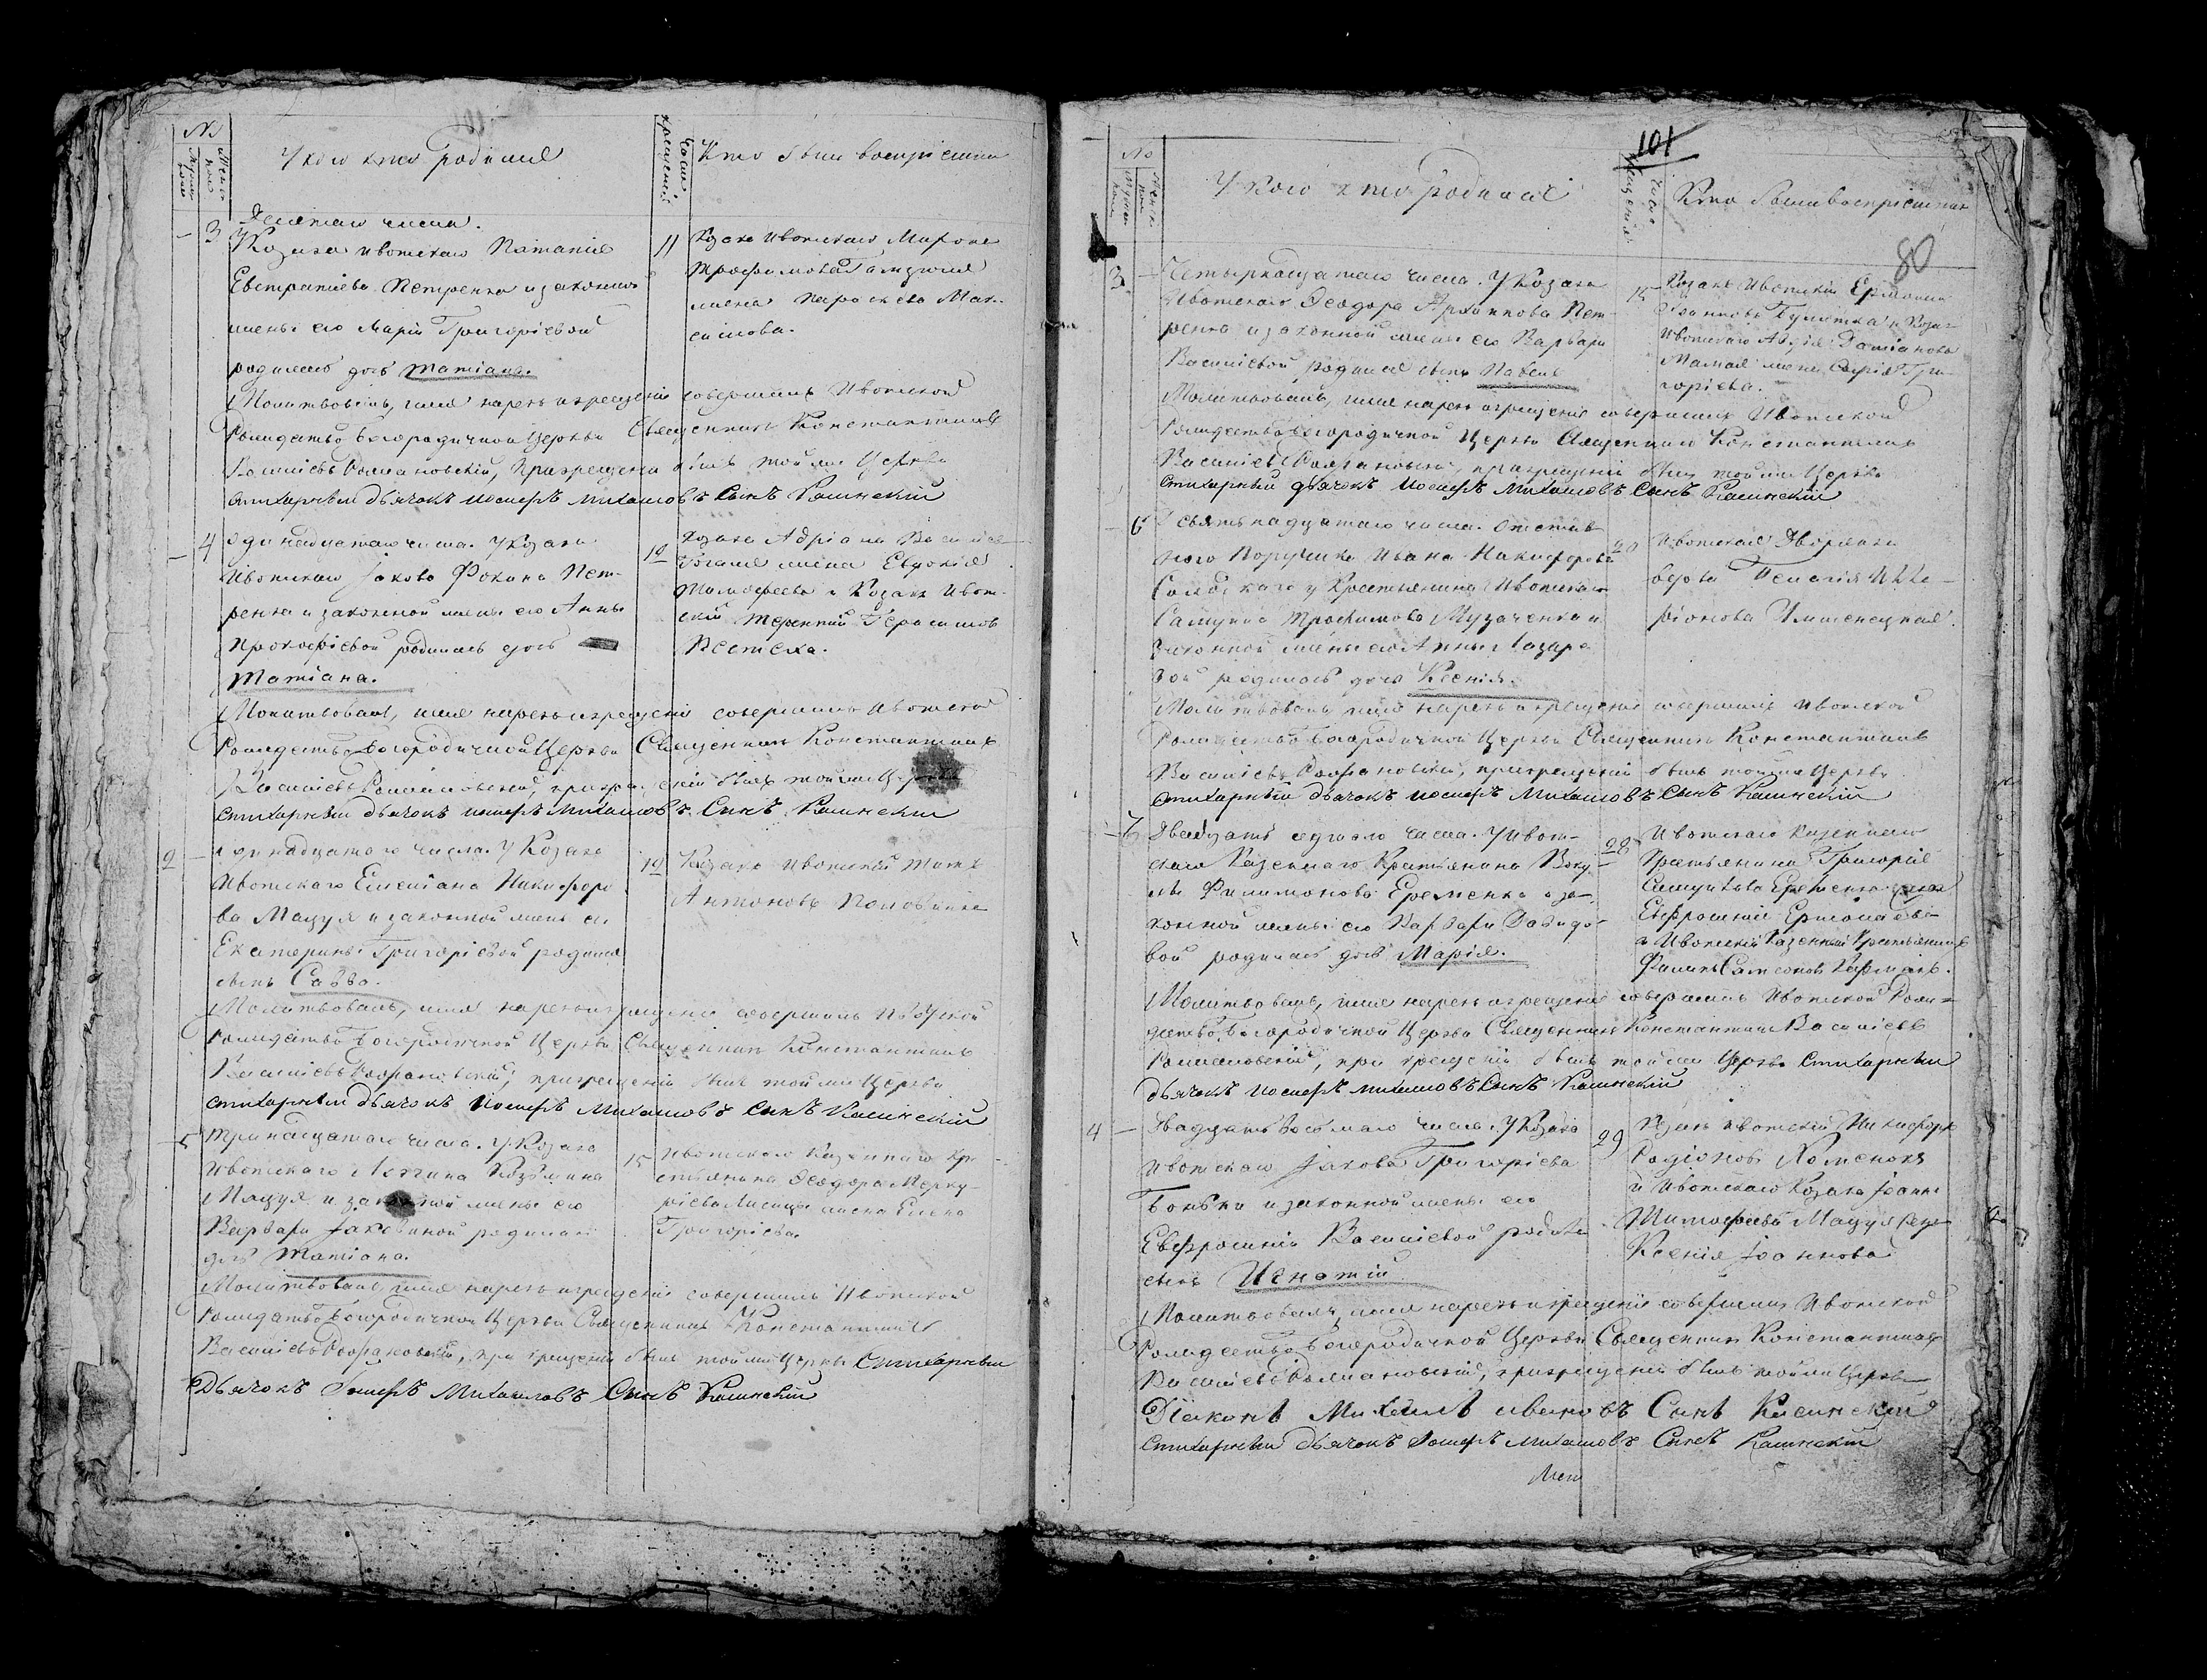 №
Мужеск
Женск пол
У кого кто родился
Число крещенія
Кто были воспріемники
Десятаго числа.
3
У Козака Ивотскаго Потапія
Евстратіева Петренка и законной
жены его Маріи Григоріевой
родилась дочь Татіана.
11
Козака Ивотскаго Мирона
Трофимова
жена Параскева Мак-
симова.
Молитвовалъ, имя нарекъ и крещеніе совершилъ Ивотской
Рождество Богородичной Церкви Священникъ Константинъ
Василіевъ Романовскій, при крещеніи былъ той же Церкви
стихарный дьячокъ Иосифъ Михаиловъ Сынъ
4
Одинадцатаго числа. У Козака
Ивотскаго Іакова Фокина Пет-
ренка и законной жены его Анны
Прокофіевой родилась дочь
Татіана.
12
Козака Адріана Василіева
жена Евдокія
Тимофеева и Козакъ Ивот-
скій Терентій Герасимов
Молитвовалъ, имя нарекъ и крещеніе совершилъ Ивотской
Рождество Богородичной Церкви Священникъ Константинъ
Василіевъ Романовскій, при крещеніи былъ той же Церкви
стихарный дьячокъ Иосифъ Михаиловъ Сынъ
2
Одинадцатаго числа. У Козака
Ивотскаго Емеліана Никифоро
ва Мацуя и законной жены его
Екатерины Григоріевой родился
сынъ Савва.
12
Козакъ Ивотскій
Антоновъ
Молитвовалъ, имя нарекъ и крещеніе совершилъ Ивотской
Рождество Богородичной Церкви Священникъ Константинъ
Василіевъ Романовскій, при крещеніи былъ той же Церкви
стихарный дьячокъ Иосифъ Михаиловъ Сынъ
5
Тринадцатаго числа. У Козака
Ивотскаго Логина Козьмина
Мацуя и законной жены его
Варвары Іаковиной родилась
дочь Татіана.
15
Ивотскаго Казеннаго кре-
стьянина Феодора Мерку-
ріева Лисицы жена Елена
Григоріева
Молитвовалъ, имя нарекъ и крещеніе совершилъ Ивотской
Рождество Богородичной Церкви Священникъ Константинъ
Василіевъ Романовскій, при крещеніи былъ той же Церкви Стихарный
Дьячокъ Іосифъ Михаиловъ Сынъ
101
№
У кого кто родился
Число крещенія
Кто были воспріемники
80
3
Четырнадцатаго числа. У Козака
Ивотскаго Феодора Архиппова Пет-
ренка и законной жены его Варвары
Василіевой, родился сынъ Павелъ
15
Козакъ Ивотскій
Іоанновъ и Козака
Ивотскаго Даміанова
Мамая жена Гри-
горіева.
Молитвовалъ, имя нарекъ и крещеніе совершилъ Ивотской
Рождество Богородичной Церкви Священникъ Константинъ
Василіевъ Романовскій, при крещеніи былъ той же Церкви
Стихарный дьячокъ Иосифъ Михаиловъ Сынъ
6
Девятьнадцатаго числа. Отстав
ного Поручика Ивана Никифорова
у Крестьянина Ивотскаго
Самуила Трофимова Музыченка и
законной жены его Анны Лазаре
вой родилась дочь Ксенія.
20
Ивотская Дворянка
Пелагія Илла-
ріонова
Молитвовалъ имя нарекъ и крещеніе совершилъ Ивотской
Рождество Богородичной Церкви Священникъ Константинъ
Василіевъ Романовскій, при крещеніи былъ той же Церкви
Стихарный дьячокъ Иосифъ Михаиловъ Сынъ
7
Двадцать седмаго числа. У Ивот-
скаго Казеннаго Крестьянина Ваку-
лы Филимонова Еременка и за-
конной жены его Варвары Давидо-
вой родилась дочь Марія.
28
Ивотскаго Казеннаго
Крестьянина Григорія
Самуилова Еременка жена
Евфросинія Ермолаева
и Ивотскій Казенный Крестьянинъ
Филипъ Самсоновъ
Молитвовалъ, имя нарекъ и крещеніе совершилъ Ивотской Рож-
дество Богородичной Церкви Священникъ Константинъ Василіевъ
Романовскій, при крещеніи былъ той же Церкви Стихарный
дьячокъ Иосифъ Михаиловъ Сынъ
4
Двадцать восьмаго числа. У Козака
Ивотскаго Іакова Григоріева
и законной жены его
Евфросиніи Василіевой родился
сынъ Игнатій
29
Козакъ Ивотскій Никифоръ
Родіоновъ Хоменокъ
и Ивотскаго Козака Іоанна
Тимофеева Мацуя жена
Ксенія Іоаннова
Молитвовалъ, имя нарекъ и крещеніе совершилъ Ивотской
Рождество Богородичной Церкви Священникъ Константинъ
Василіевъ Романовскій, при крещеніи былъ той же Церкви
Діаконъ Михаилъ Ивановъ Сынъ
Стихарный дьячокъ Іосифъ Михаиловъ Сынъ